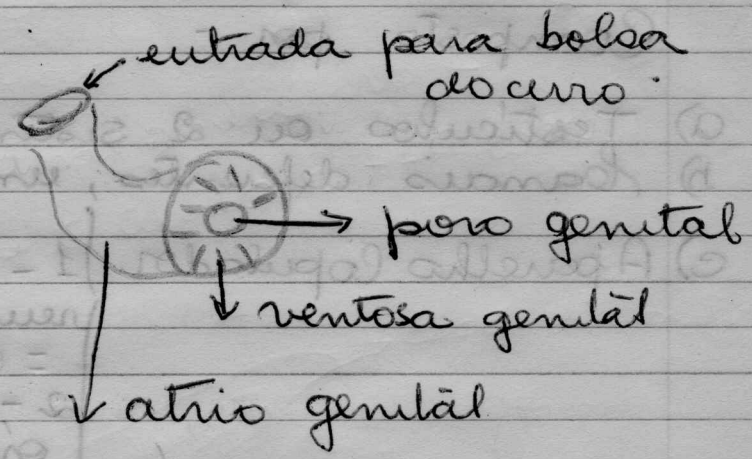 entrada para bolsa
do cirro.
poro genital
ventosa genitál
atrio genitál